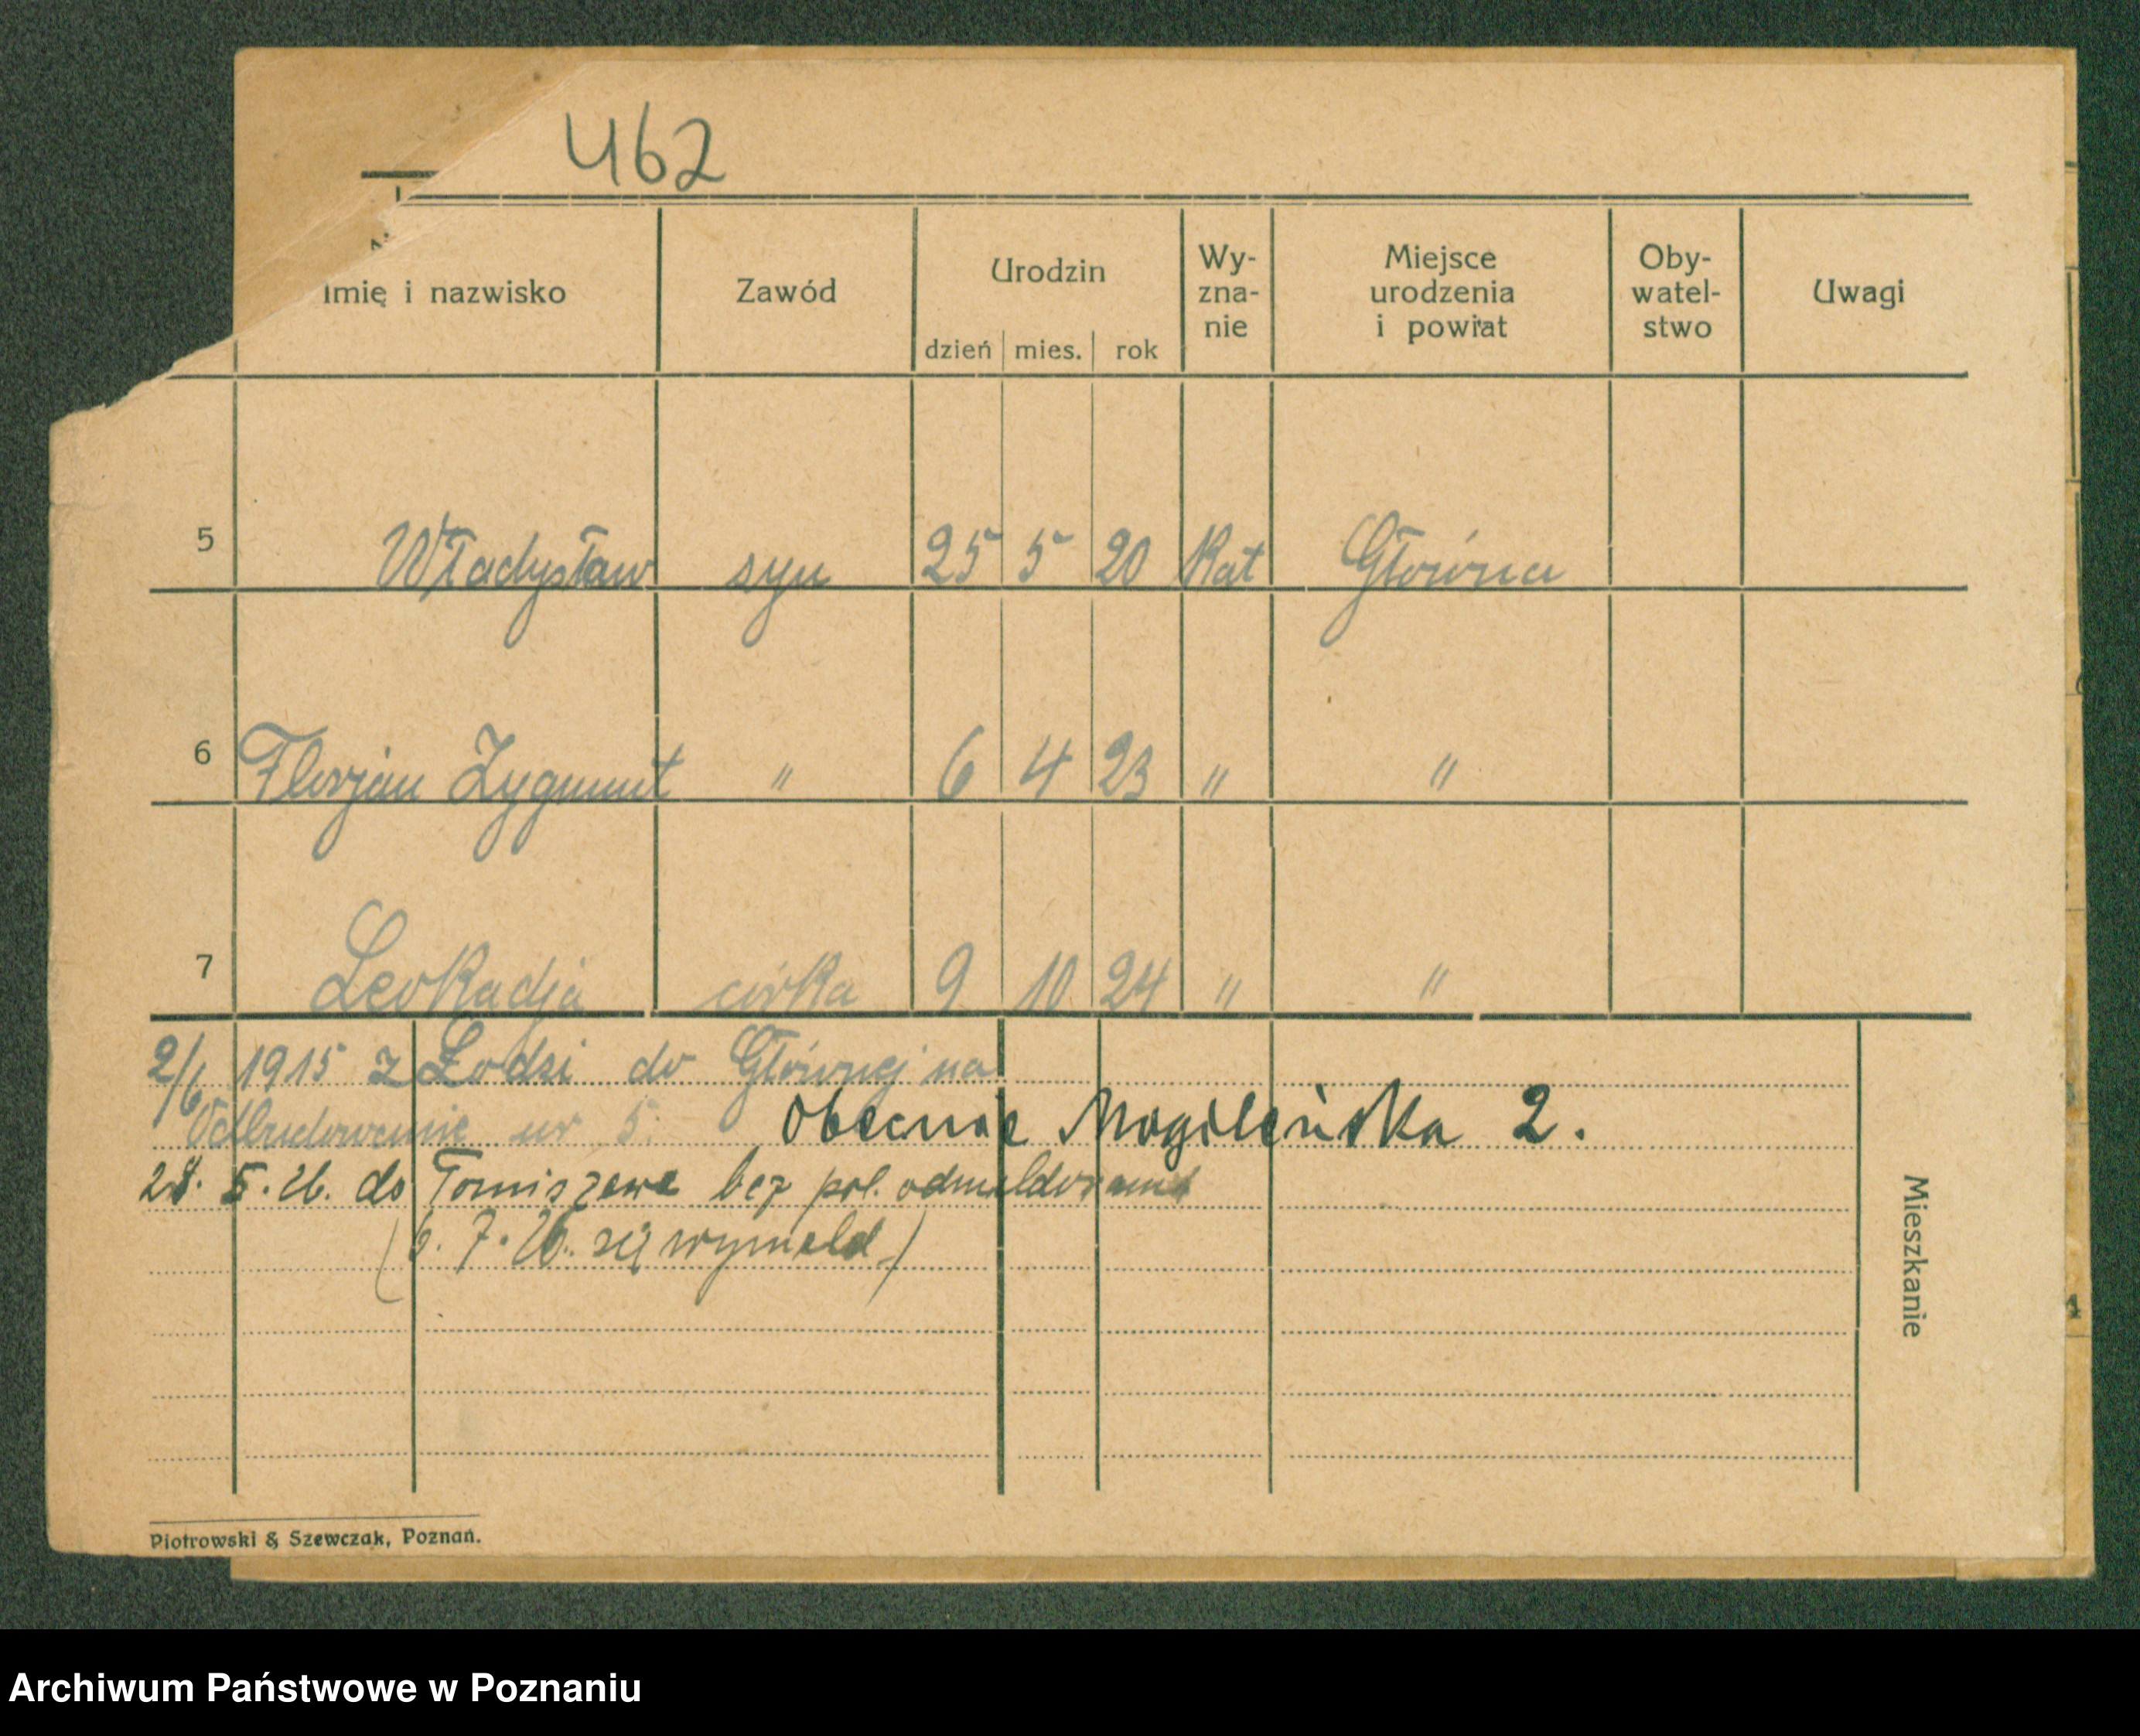 462
Imię i nazwisko Zawód Urodzin Wy-zna-nie Miejsce urodzenia i powiat Oby-watel-stwo Uwagi
dzień mies. rok
5 Władysław syn 25 5 20 Kat Główna
6 Florjan Zygmunt " 6 4 23 " "
7 Leokadja córka 9 10 24 " "
2/6 1915 z Łodzi do Głównej na
Odbudowanie nr 5. Obecnie Mogileńska 2.
28. 5. 26. do Tomiszewa bez pol. odmeldowania
7. 26. się wymeld)
Mieszkanie
Piotrowski & Szewczak, Poznań.
Archiwum Państwowe w Poznaniu